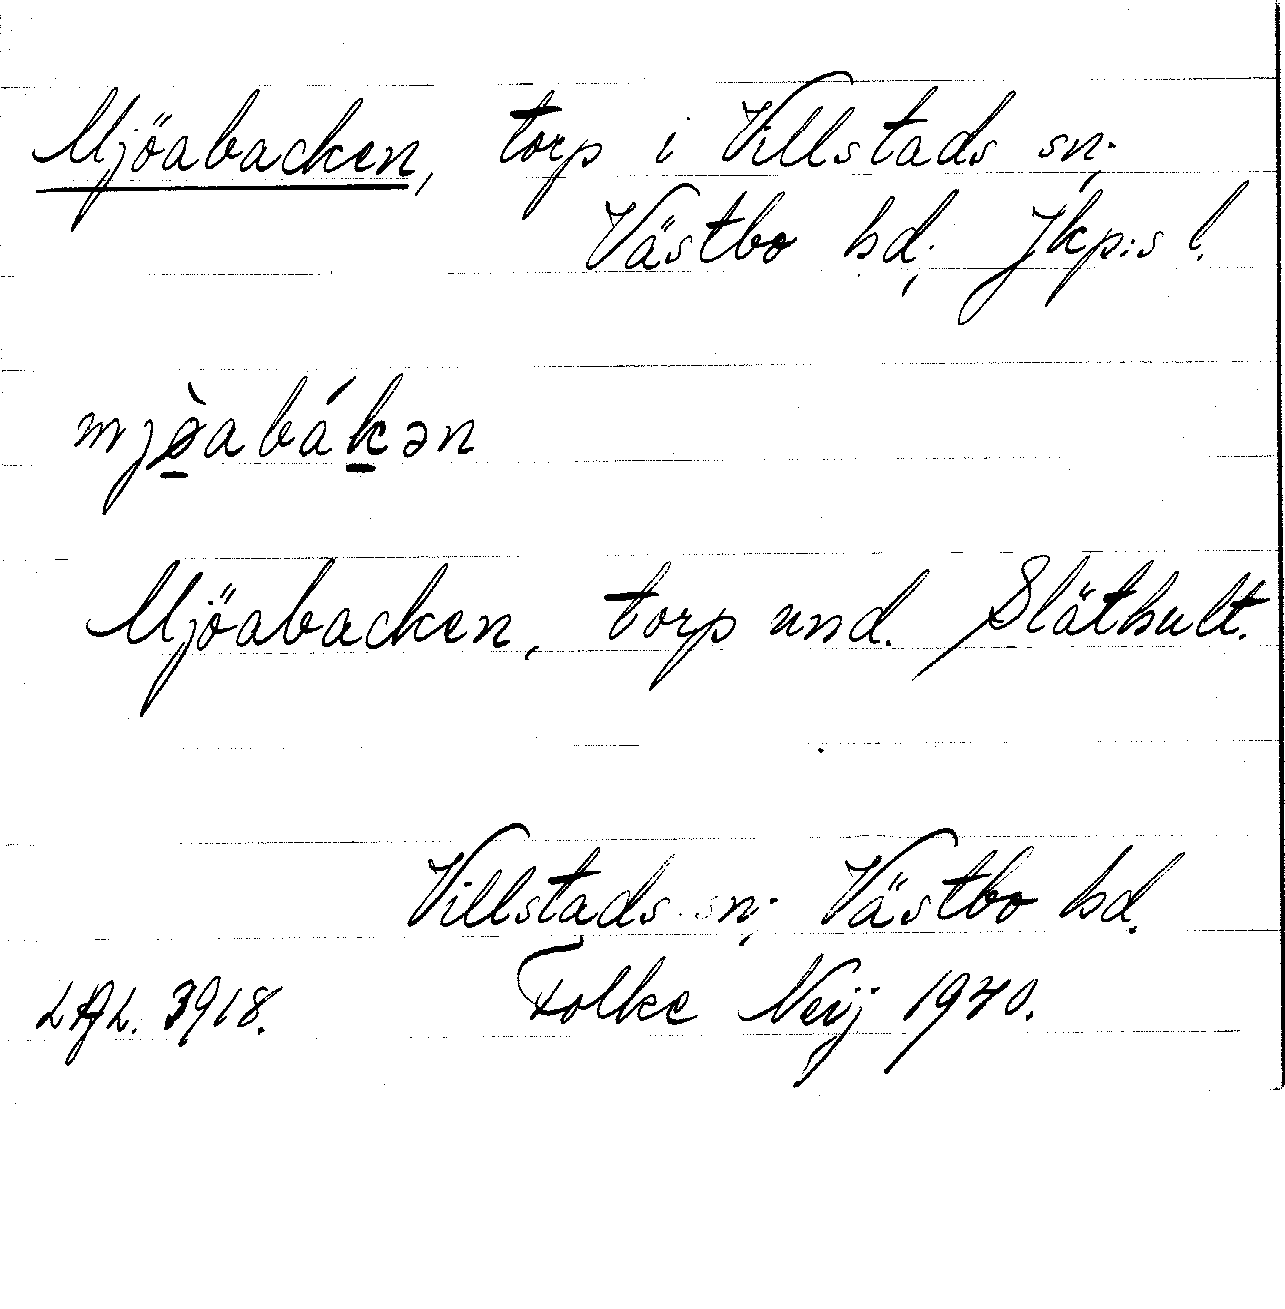 Mjöabacken, torp i Villstads sn;
Västbo hd; Jkp:s l.
mjø̀abákən
Mjöabacken, torp und. Släthult.
Villstads sn; Västbo hd.
LAL. 3918. Folke Neij 1940.